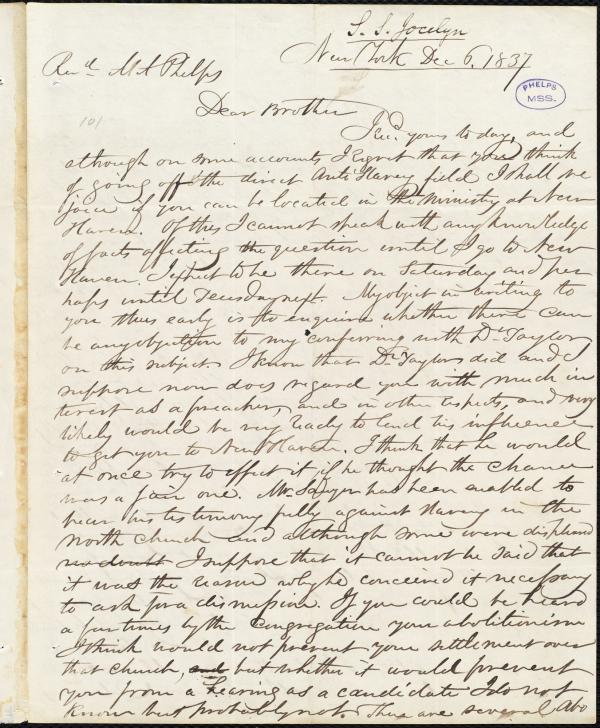 S. S. Jocelyn
New York Dec 6, 1837
Revd. M A Phelps
PHELPS
MSS.
101
Dear Brother
I rec. yours to day, and
although on some accounts I regret that you think
of going off the direct Anti Slavery field I shall re
joice if you can be located in the Ministry at New
Haven. Of this I cannot speak with any knowledge
of facts affecting the question until I go to New
Haven. I expect to be there on Saturday and per
haps until Tuesday next. My object in writing to
you thus early is to enquire whether there can
be any objection to my conferring with Dr. Taylor
on this subject. I know that Dr. Taylor did and I
suppose now does regard you with much in
terest as a preacher, and in other aspects, and very
likely would be very ready to lend his influence
to get you to New Haven. I think that he would
at once try to effect it, if he thought the chance
was a fair one. Mr. has been enabled to
bear his testimony fully against slavery in the
North Church and although some were displeased
no doubt I suppose that it cannot be said that
it was the reason why he conceived it necessary
to ask for a dismission. If you could be heard
a few times by the Congregation your abolitionism
I think would not prevent your settlement over
that church, and but whether it would prevent
you from a hearing as a candidate I do not
know but probably not. There are several Abo